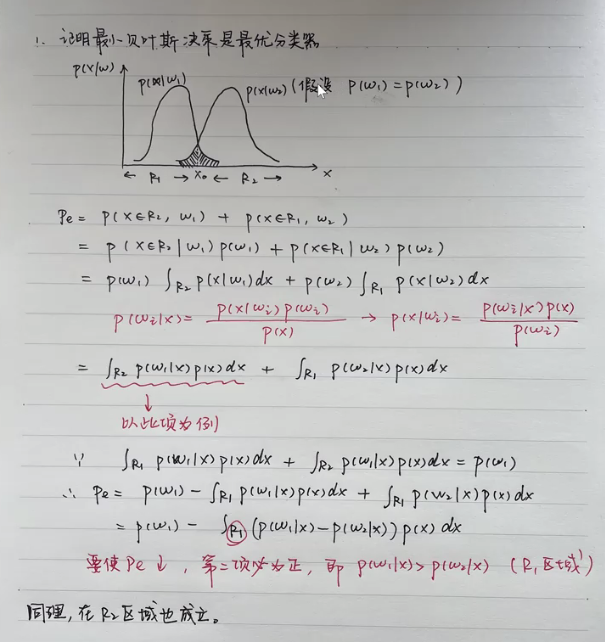 1. 证明最小贝叶斯决策是最优分类器
p(x|w)
p(x|w₁)
p(x|w₂) (假设 p(w₁)=p(w₂))
← R₁ → x₀ ← R₂ → x
Pe = p(x∈R₂, w₁) + p(x∈R₁, w₂)
= p(x∈R₂|w₁)p(w₁) + p(x∈R₁|w₂)p(w₂)
= p(w₁) ∫R₂ p(x|w₁)dx + p(w₂) ∫R₁ p(x|w₂)dx
p(wᵢ|x) = p(x|wᵢ)p(wᵢ) / p(x) → p(x|wᵢ) = p(wᵢ|x)p(x) / p(wᵢ)
= ∫R₂ p(w₁|x)p(x)dx + ∫R₁ p(w₂|x)p(x)dx
↓
以此项为例
∵ ∫R₁ p(w₁|x)p(x)dx + ∫R₂ p(w₁|x)p(x)dx = p(w₁)
∴ Pe = p(w₁) - ∫R₁ p(w₁|x)p(x)dx + ∫R₁ p(w₂|x)p(x)dx
= p(w₁) - ∫R₁ (p(w₁|x) - p(w₂|x)) p(x) dx
要使 Pe ↓, 第二项必为正, 即 p(w₁|x) > p(w₂|x) (R₁区域)
同理, 在 R₂ 区域也成立。